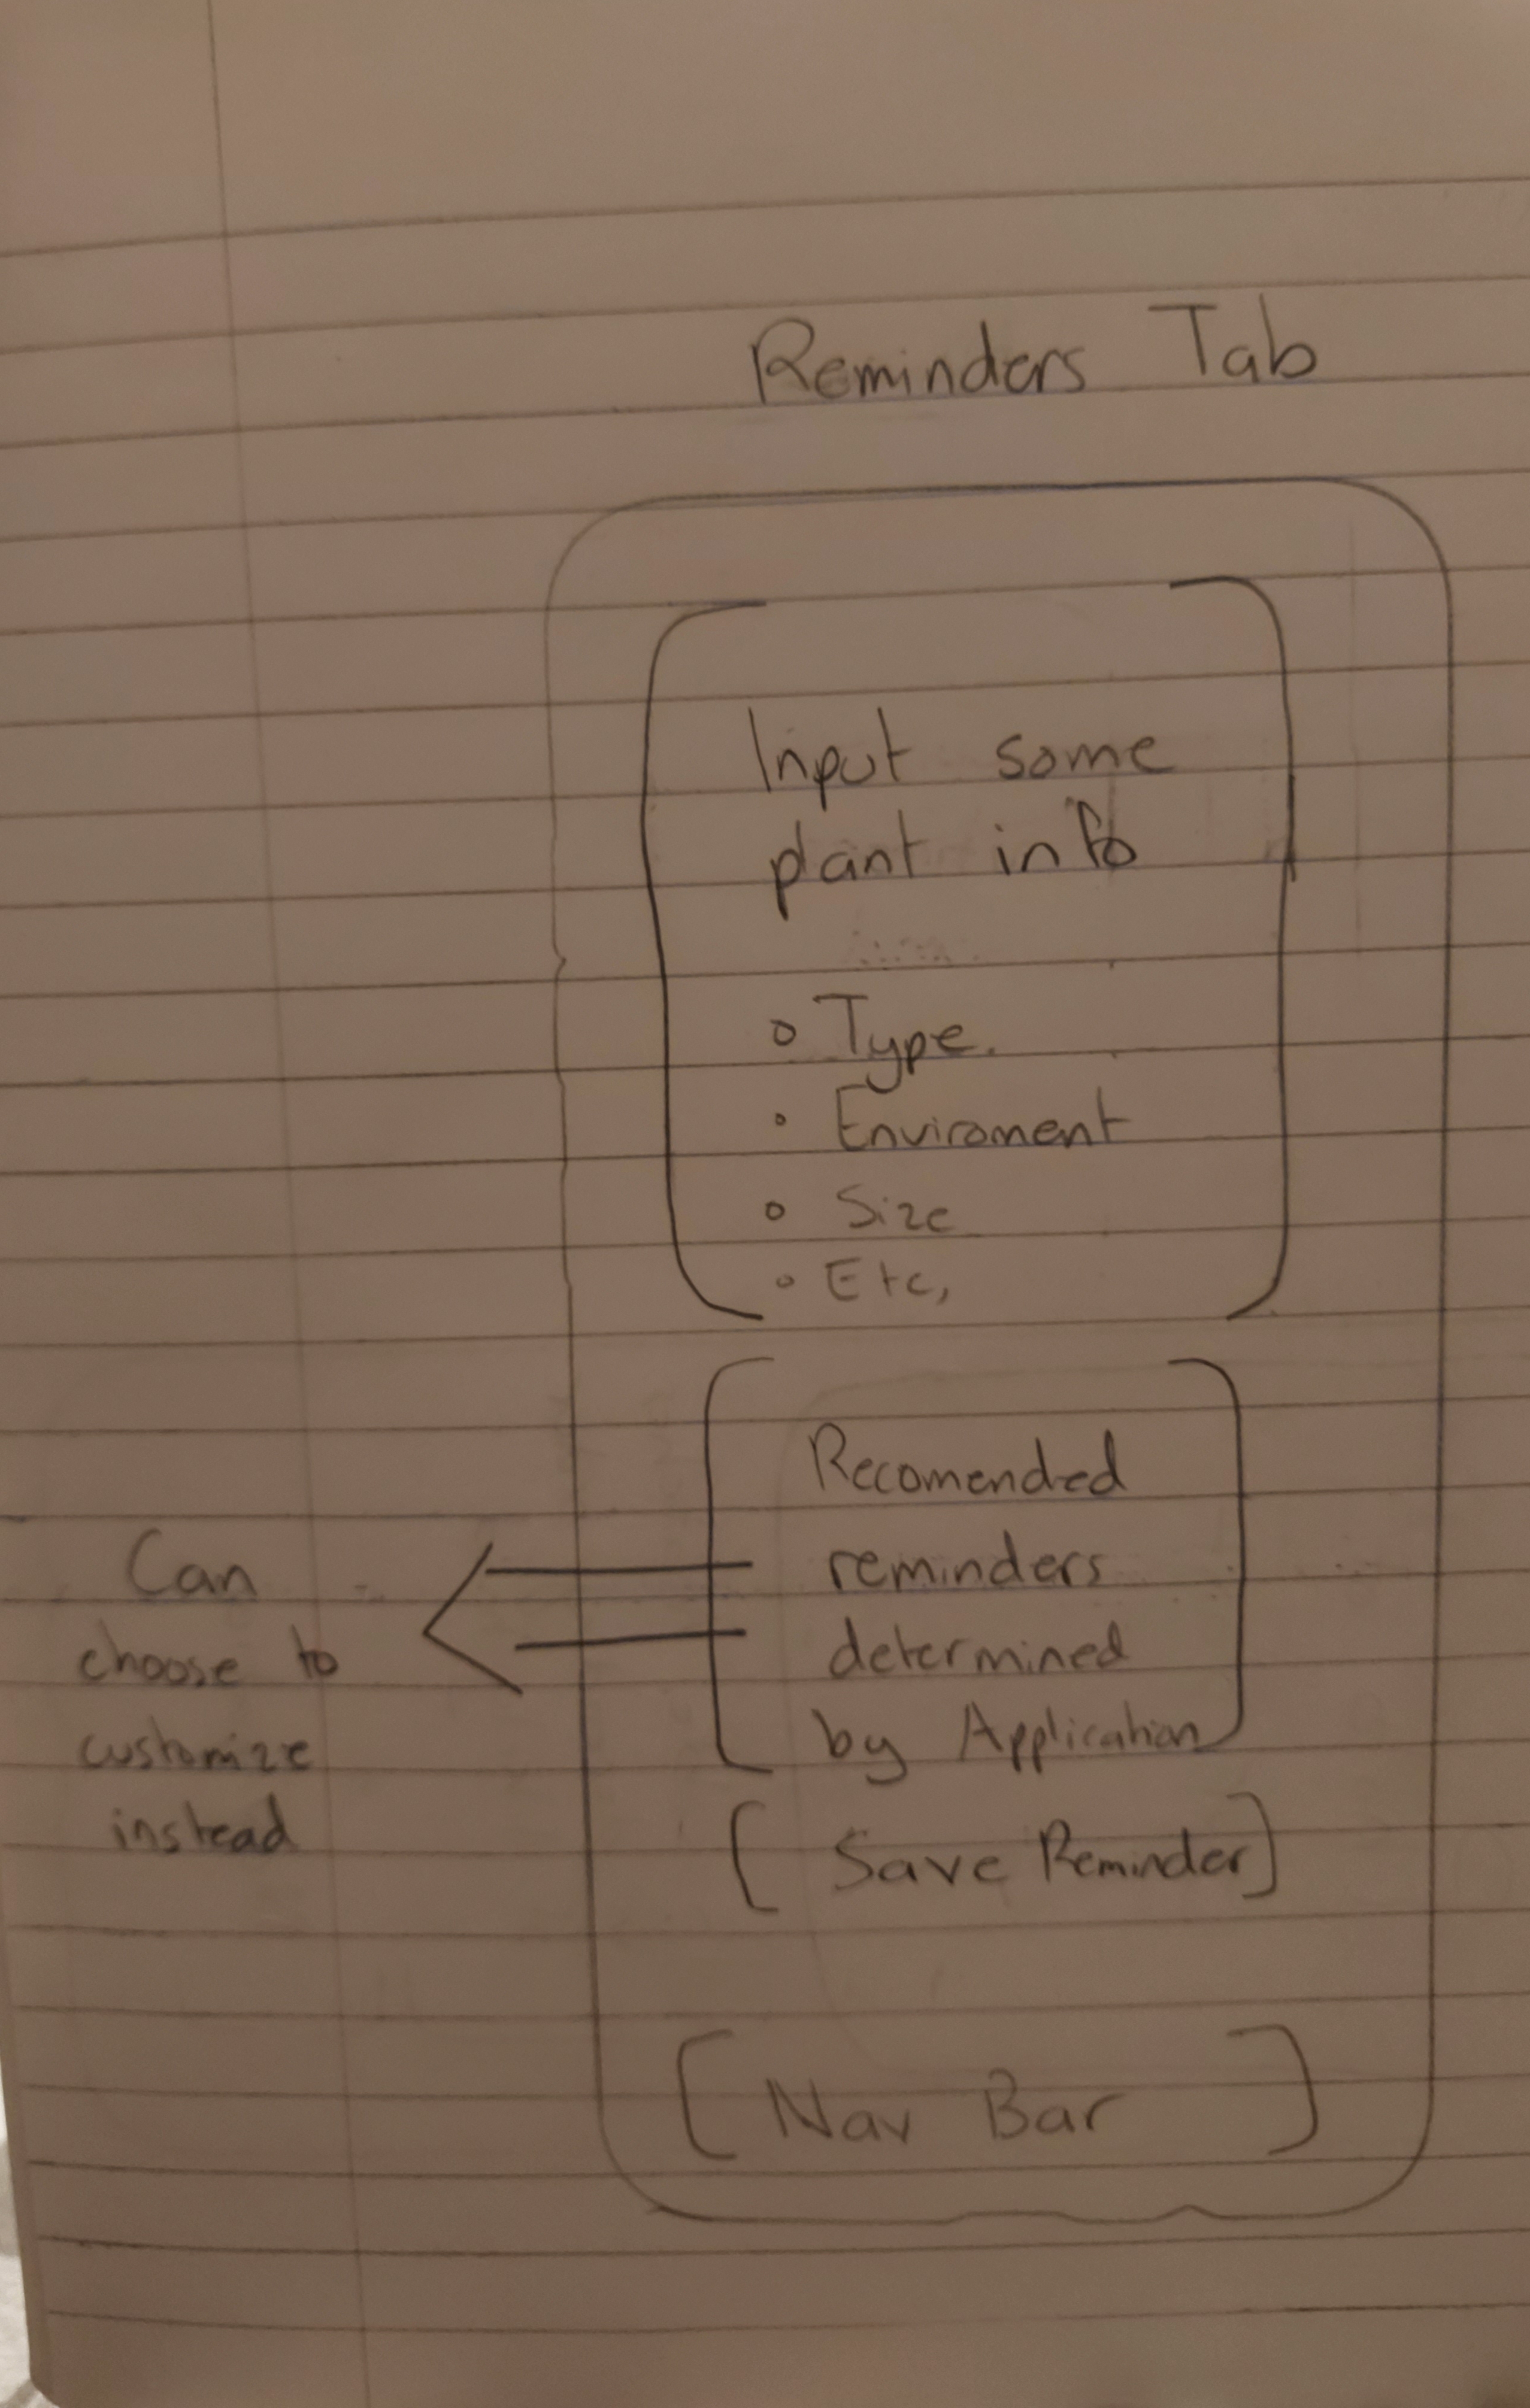 Reminders Tab
Input some
plant info
o Type.
o Enviroment
o Size
o Etc,
Recomended
reminders
determined
by Application
Can
choose to
customize
instead
[ Save Reminder ]
[ Nav Bar ]